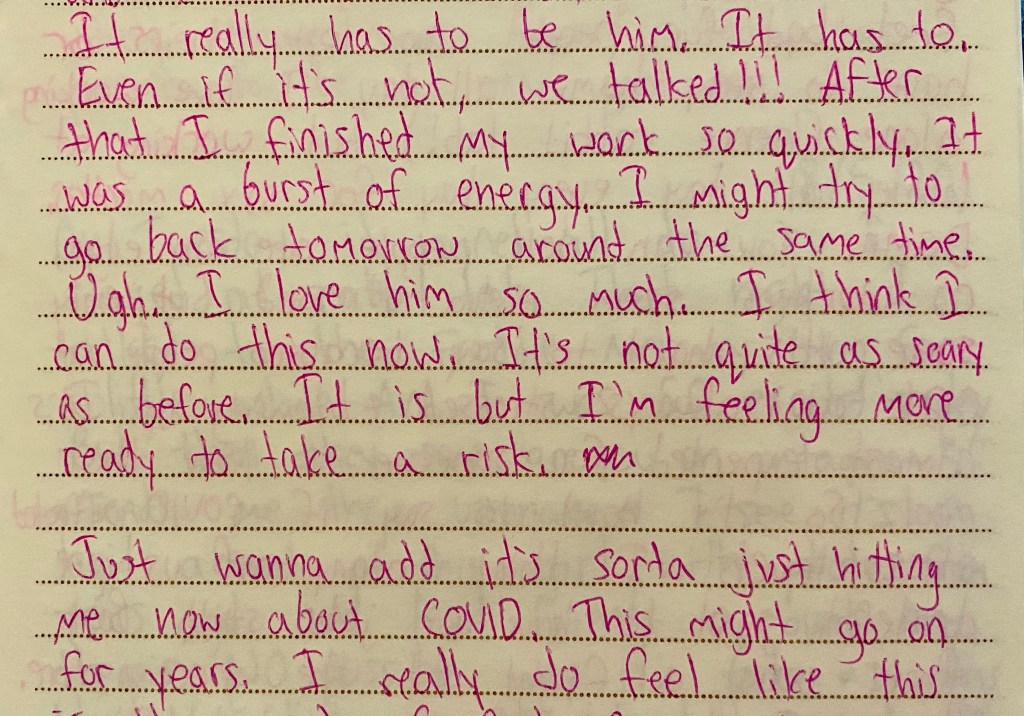 It really has to be him. It has to.
Even if it's not, we talked!!! After
that I finished my work so quickly. It
was a burst of energy. I might try to
go back tomorrow around the same time.
Ugh. I love him so much. I think I
can do this now. It's not quite as scary
as before. It is but I'm feeling more
ready to take a risk.
Just wanna add it's sorta just hitting
me now about COVID. This might go on
for years. I really do feel like this